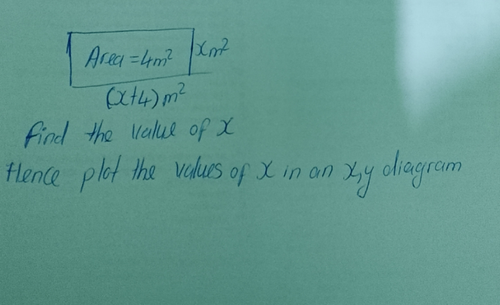 Area = 4m² xm²
(x+4)m²
find the value of x
Hence plot the values of x in an x,y diagram